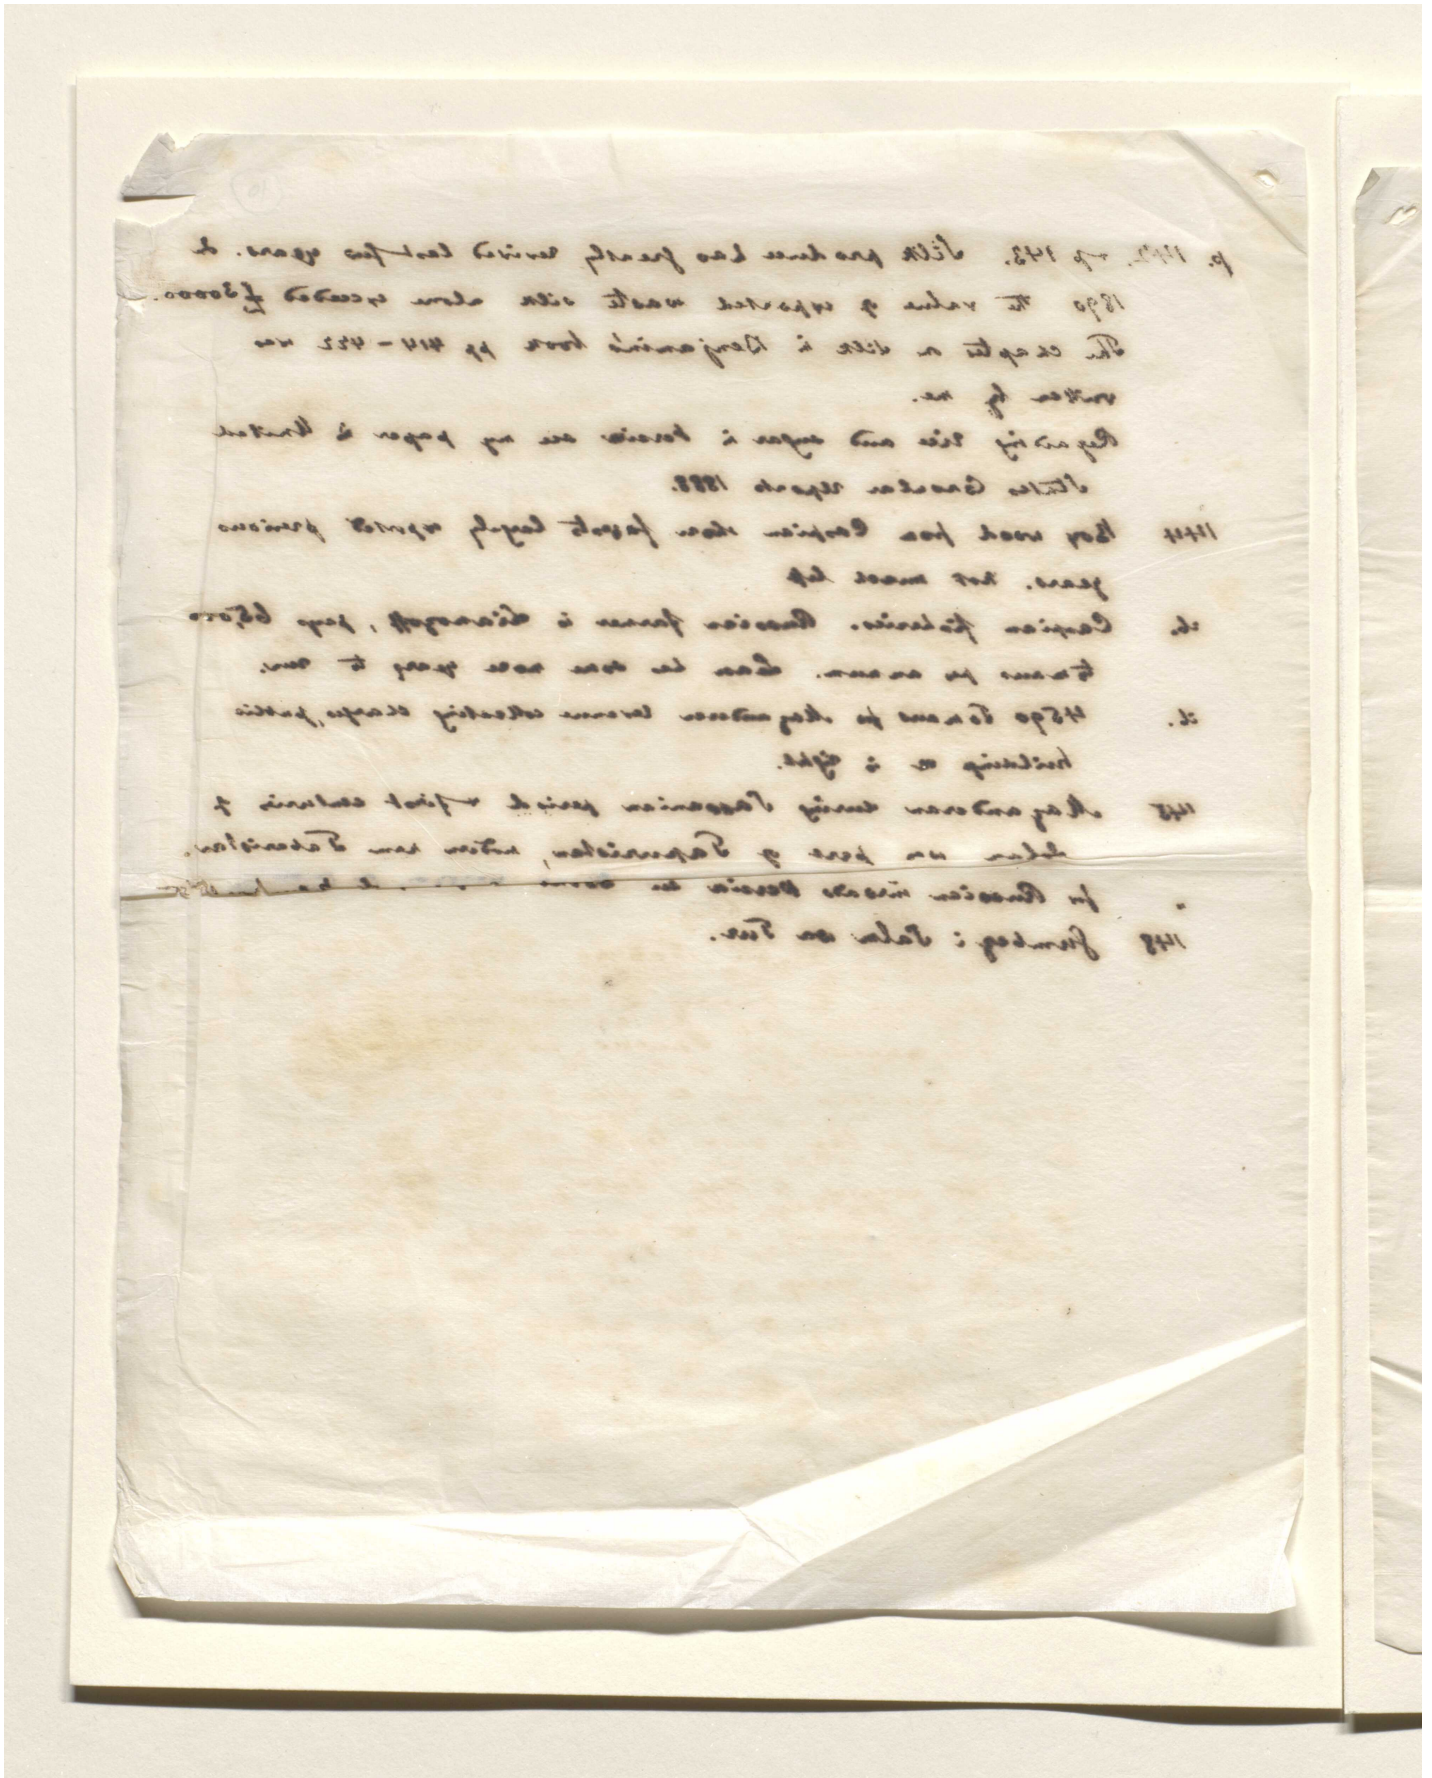 p. 142, & p 143. Silk produce has greatly revived last few years. I
1890 the value of exported waste silk alone exceeded £30000.
The chapter on silk in Benjamin's book pp 414-422 was
written by me.
Regarding rice and sugar in Persia see my paper in United
States Consular reports 1888.
144 Box wood from Caspian shore forests largely exported previous
years. Not much left
ib. Caspian fisheries. Russian farmer is Lianozoff, pays 65,000
tomans per annum. Has one more year to run.
ib. 4590 Tomans for Mazanderan revenue collecting charges, public
buildings is right.
145 Mazanderan during Sassanian period & first centuries of
Islam was part of Tapuristan, modern name Taberistan.
" for Russian inroads Persia
148 Gumbez i Salm wa Tur.